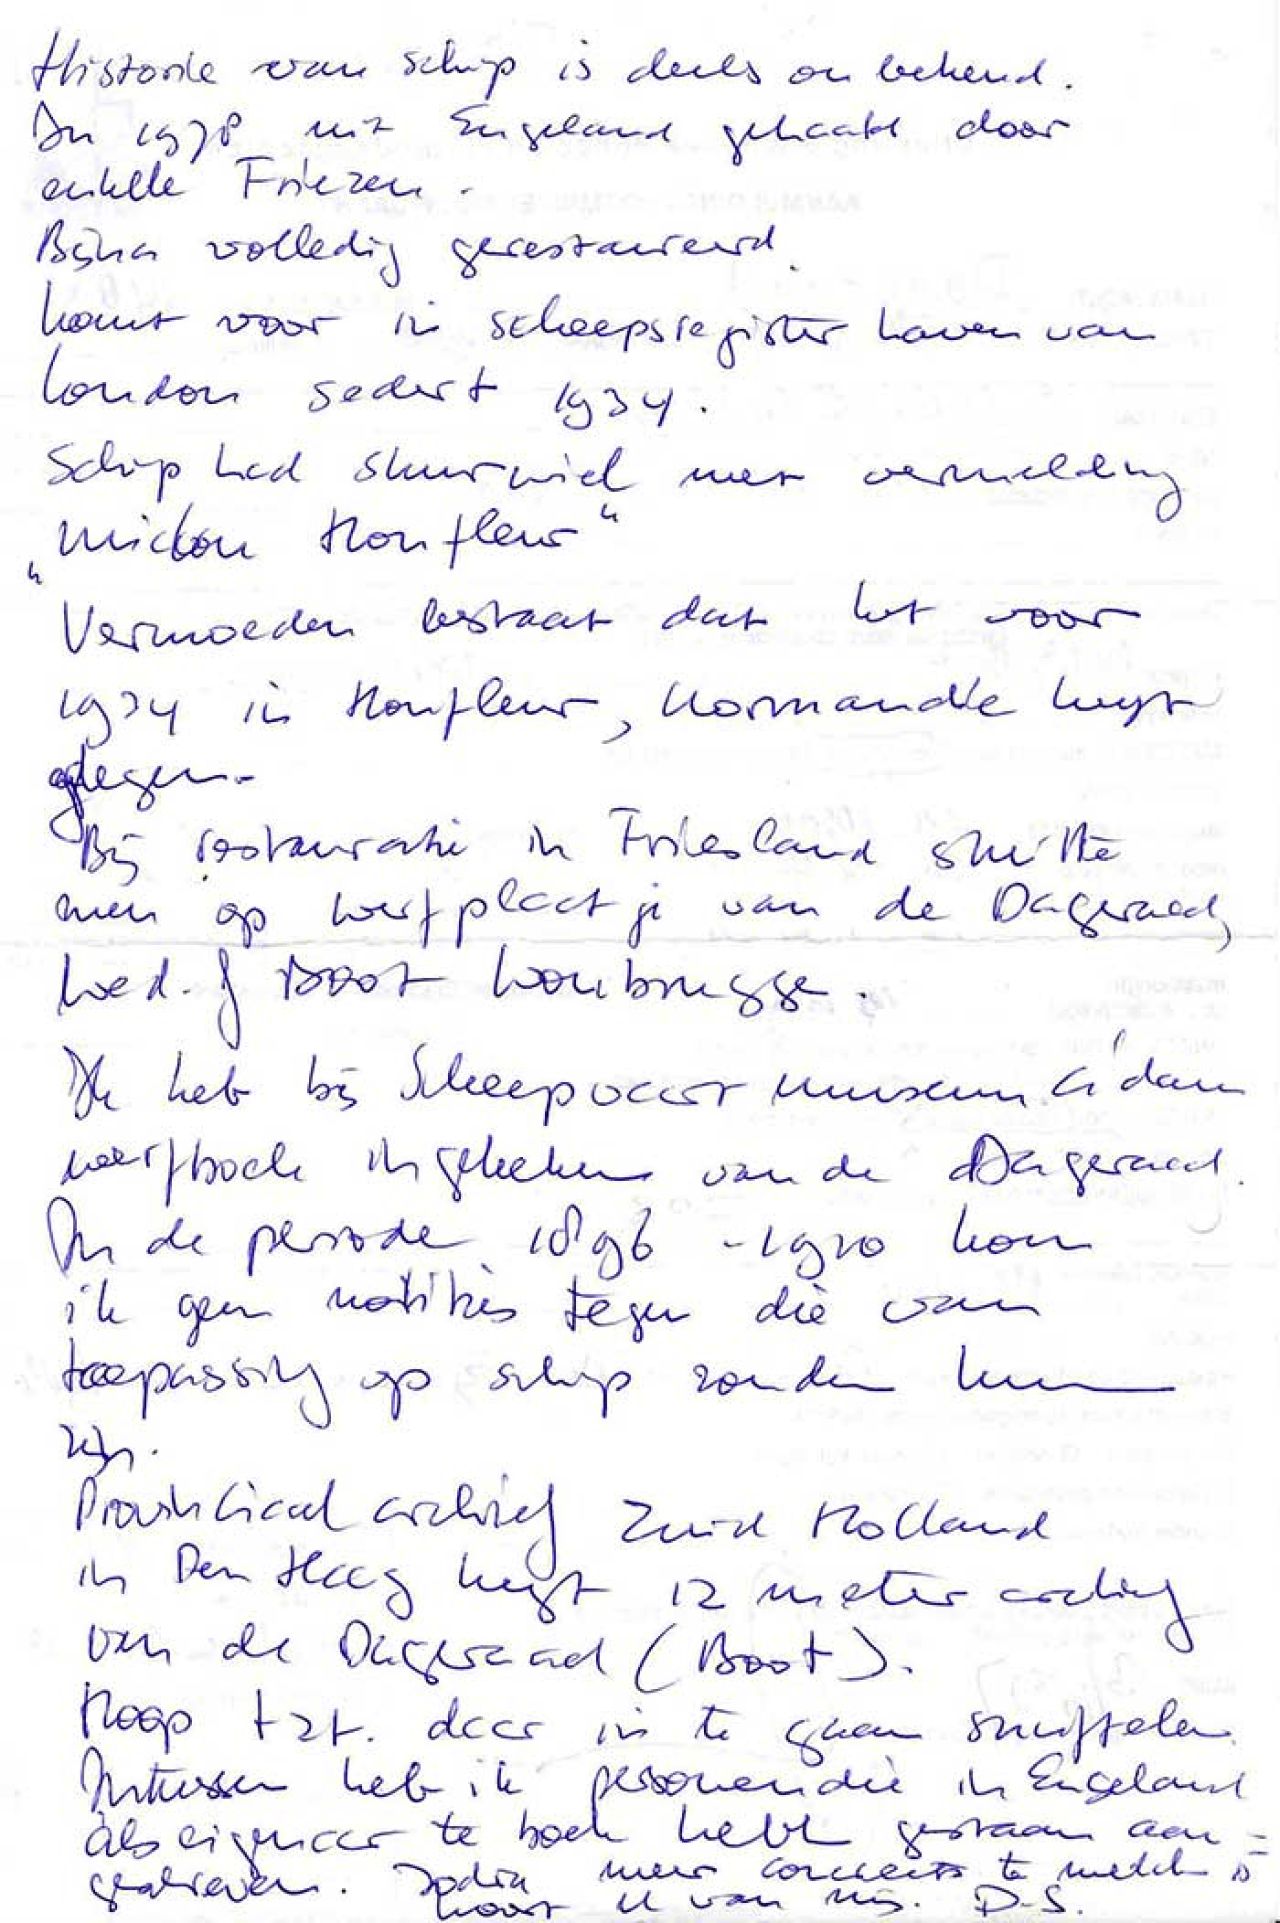 Historie van schip is deels onbekend.
In 1978 uit Engeland gehaald door
enkele Friezen.
Bijna volledig gerestaureerd.
komt voor in scheepsregister haven van
London sedert 1934.
Schip had stuurwiel met vermelding
"  Honfleur"
Vermoeden bestaat dat het voor
1934 in Honfleur, Normandie heeft
gelegen.
Bij restauratie in Friesland stuitte
men op werfplaatje van de Dageraad,
wed. J Boot Woubrugge.
Ik heb bij Scheepvaart museum A'dam
werfboek ingekeken van de Dageraad.
In de periode 1896 - 1920 kom
ik geen notities tegen die van
toepassing op schip zouden kunnen
zijn.
Provinciaal archief Zuid Holland
in Den Haag heeft 12 meter archief
van de Dageraad (Boot).
Hoop tzt. daar in te gaan snuffelen.
Intussen heb ik personen die in Engeland
als eigenaar te boek hebben gestaan aan-
geschreven. Zodra meer concreets te melden is
hoort u van mij. D.S.